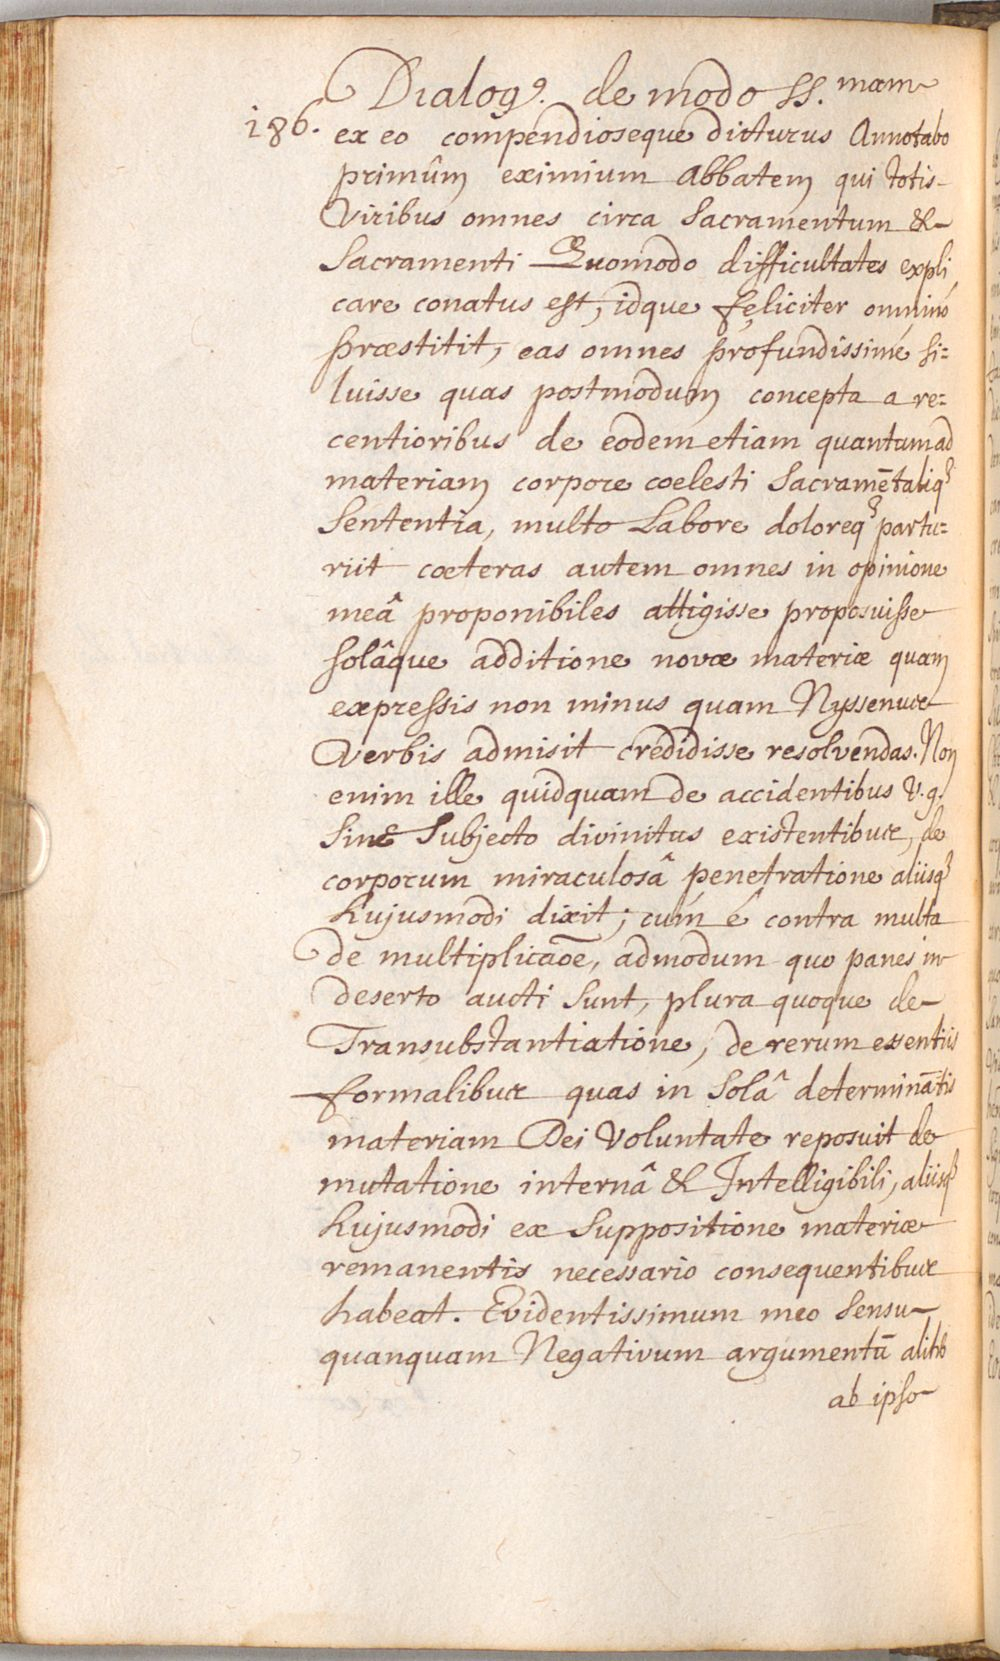 Dialogꝰ. de modo SS. mam
186.
ex eo compendioseque dicturus Annotabo
primûm eximium Abbatem qui totis
Viribus omnes circa Sacramentum &
Sacramenti Quomodo difficultates expli
care conatus est, idque feliciter omnino
præstitit, eas omnes profundissime si=
luisse quas postmodum concepta a re=
centioribus de eodem etiam quantum ad
materiam corpore coelesti Sacramētaliq̃
Sententia, multo Labore doloreq̃ partu=
riit cœteras autem omnes in opinione
meâ proponibiles attigisse proposuisse
solâque additione novæ materiæ quam
expressis non minus quam Nyssenus
Verbis admisit credidisse resolvendas. Non
enim ille quidquam de accidentibus V.g.
Sine Subjecto divinitus existentibus, de
corporum miraculosâ penetratione aliisq̃
hujusmodi dixit; cum é contra multa
de multiplicaõe, admodum quo panes in
deserto aucti sunt, plura quoque de
Transubstantiatione, de rerum essentiis
formalibus quas in Solâ determinātis
materiam Dei Voluntate reposuit de
mutatione internâ & Intelligibili, aliisq̃
hujusmodi ex Suppositione materiæ
remanentis necessario consequentibus
habeat. Evidentissimum meo Sensu
quanquam Negativum argumentū
ab ipso